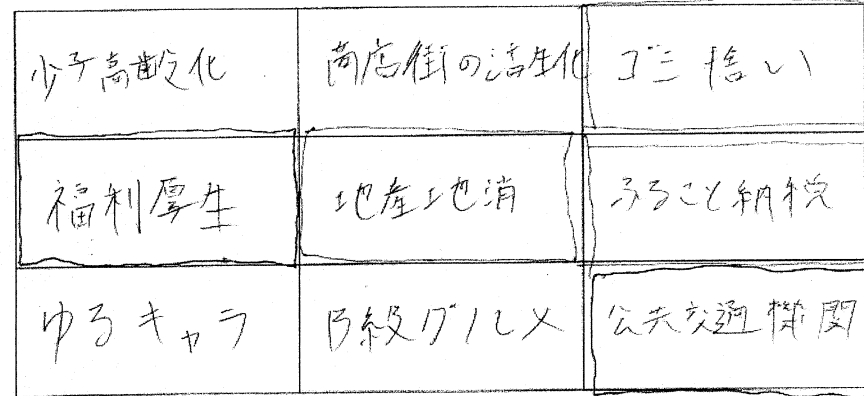 少子高齢化 商店街の活生化 ゴミ拾い
福利厚生 地産地消 ふること納税
ゆるキャラ B級グルメ 公共交通機関